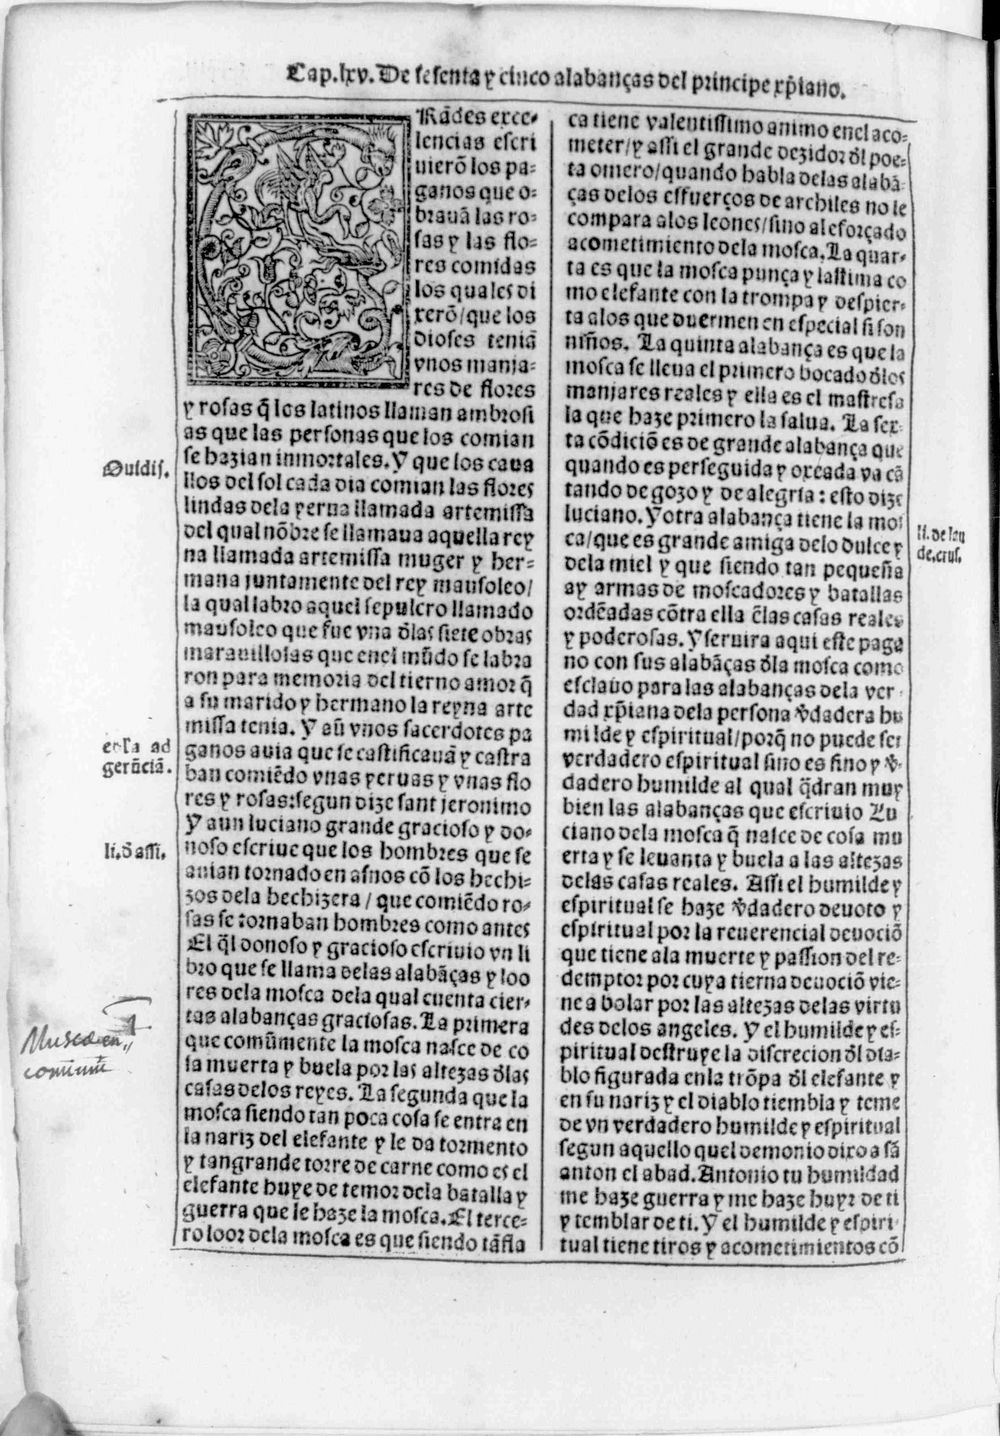 Cap.lxv. De sesenta y cinco alabanças del principe xp̃iano.
GRãdes exce-
lencias escri
uierõ los pa-
ganos que o-
brauã las ro-
sas y las flo-
res comidas
los quales di
xerõ/que los
dioses teniã
vnos manja-
res de flores
y rosas q̃ los latinos llaman ambrosi
as que las personas que los comian
se hazian inmortales. Y que los caua
llos del sol cada dia comian las flores
lindas dela yerua llamada artemissa
del qual nõbre se llamaua aquella rey
na llamada artemissa muger y her-
mana juntamente del rey mausoleo/
la qual labro aquel sepulcro llamado
mausoleo que fue vna d̃las siete obras
marauillosas que enel mũdo se labra
ron para memoria del tierno amor q̃
a su marido y hermano la reyna arte
missa tenia. Y aũ vnos sacerdotes pa
ganos auia que se castificauã y castra
ban comiẽdo vnas yeruas y vnas flo
res y rosas:segun dize sant jeronimo
Y aun luciano grande gracioso y do-
noso escriue que los hombres que se
auian tornado en asnos cõ los hechi-
zos dela hechizera / que comiẽdo ro-
sas se tornaban hombres como antes
El q̃l donoso y gracioso escriuio vn li
bro que se llama delas alabãças y loo
res dela mosca dela qual cuenta cier-
tas alabanças graciosas. La primera
que comũmente la mosca nasce de co
sa muerta y buela por las altezas d̃las
casas delos reyes. La segunda que la
mosca siendo tan poca cosa se entra en
la nariz del elefante y le da tormento
y tangrande torre de carne como es el
elefante huye de temor dela batalla y
guerra que le haze la mosca. El terce-
ro loor dela mosca es que siendo tã fla
Ouidis.
geruñciã.
li.d̃ assi.
Musca en
comium
ca tiene valentissimo animo enel aco-
meter/y assi el grande dezidor d̃l poe-
ta omero/quando habla delas alabã-
ças delos esfuerços de archiles no le
compara alos leones/sino al esforçado
acometimiento dela mosca. La quar-
ta es que la mosca punça y lastima co
mo elefante con la trompa y despier-
ta alos que duermen en especial si son
niños. La quinta alabança es que la
mosca se lleua el primero bocado d̃los
manjares reales y ella es el mastresa
la que haze primero la salua. La sex-
ta cõdiciõ es de grande alabança que
quando es perseguida y oxeada va cã
tando de gozo y de alegria: esto dize
luciano. Y otra alabança tiene la mos
ca/que es grande amiga delo dulce y
dela miel y que siendo tan pequeña
ay armas de moscadores y batallas
ordẽadas cõtra ella ẽlas casas reales
y poderosas. Y seruira aqui este paga
no con sus alabãças d̃la mosca como
esclauo para las alabanças dela ver-
dad xp̃iana dela persona v̄dadera hu
milde y espiritual/porq̃ no puede ser
verdadero espiritual sino es fino y v̄-
dadero humilde al qual q̃dran muy
bien las alabanças que escriuio Lu
ciano dela mosca q̃ nasce de cosa mu
erta y se leuanta y buela a las altezas
delas casas reales. Assi el humilde y
espiritual se haze v̄dadero deuoto y
espiritual por la reuerencial deuociõ
que tiene ala muerte y passion del re-
demptor por cuya tierna deuociõ vie-
ne a bolar por las altezas delas virtu
des delos angeles. Y el humilde y es-
piritual destruye la discrecion d̃l dia-
blo figurada enla trõpa d̃l elefante y
en su nariz y el diablo tiembla y teme
de vn verdadero humilde y espiritual
segun aquello quel demonio dixo a sã
anton el abad. Antonio tu humildad
me haze guerra y me haze huyr de ti
y temblar de ti. Y el humilde y espiri-
tual tiene tiros y acometimientos cõ
li. de lau
de.crus.